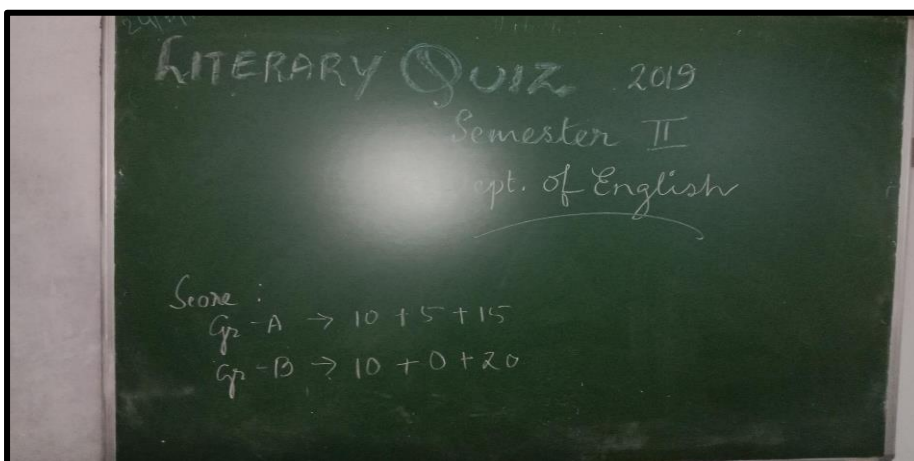 LITERARY QUIZ 2019
Semester II
Dept. of English
Score :
Gr-A → 10 + 5 + 15
Gr-B → 10 + 0 + 20